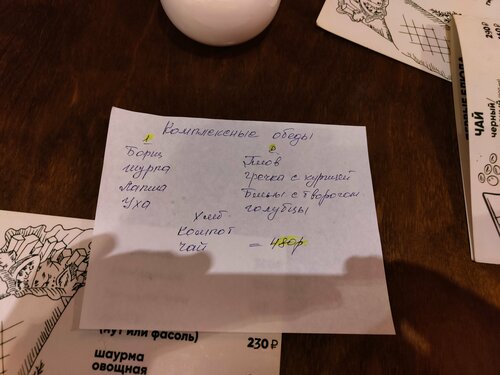 Комплексные обеды
1
Борщ
Шурпа
Лапша
Уха
2
Плов
Гречка с курицей
Блины с творогом
голубцы
Хлеб
Компот
Чай = 480р
(нут или фасоль)
шаурма 230 ₽
овощная
230 ₽
ЧАЙ
черный/